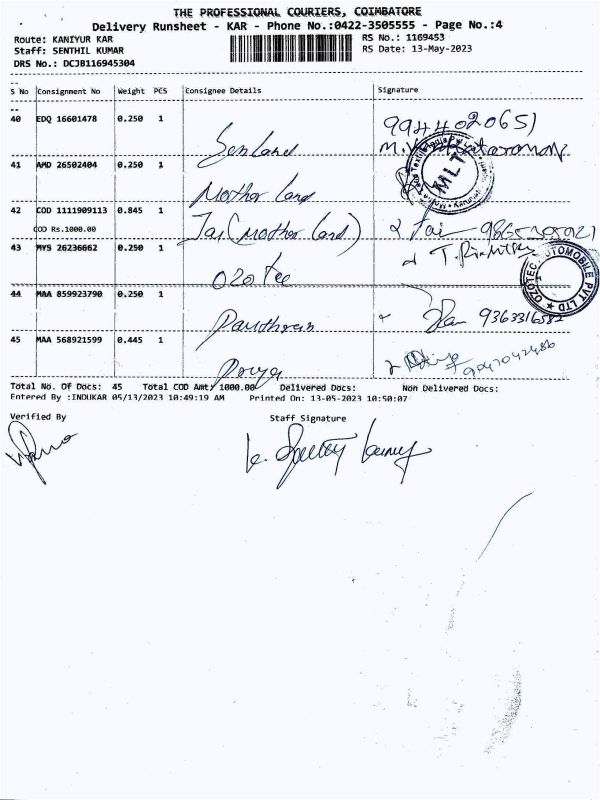 THE PROFESSIONAL COURIERS, COIMBATORE
Delivery Runsheet - KAR - Phone No.:0422-3505555 - Page No.:4
Route: KANIYUR KAR
RS No.: 1169453
Staff: SENTHIL KUMAR
RS Date: 13-May-2023
DRS No.: DCJB116945304
S No Consignment No Weight PCS Consignee Details Signature
40 EDQ 16601478 0.250 1
Senland
41 AMD 26502404 0.250 1
MLT
Mother land
42 COD 1111909113 0.845 1
COD Rs.1000.00
Jai (Mother land)
Jai
43 MYS 26236662 0.250 1
Ozo tec
OZOTEC AUTOMOBILE PVT LTD
44 MAA 859923790 0.250 1
9363316582
45 MAA 568921599 0.445 1
9047042486
Total No. Of Docs: 45 Total COD Amt: 1000.00 Delivered Docs: Non Delivered Docs:
Entered By :INDUKAR 05/13/2023 10:49:19 AM Printed On: 13-05-2023 10:50:07
Verified By Staff Signature